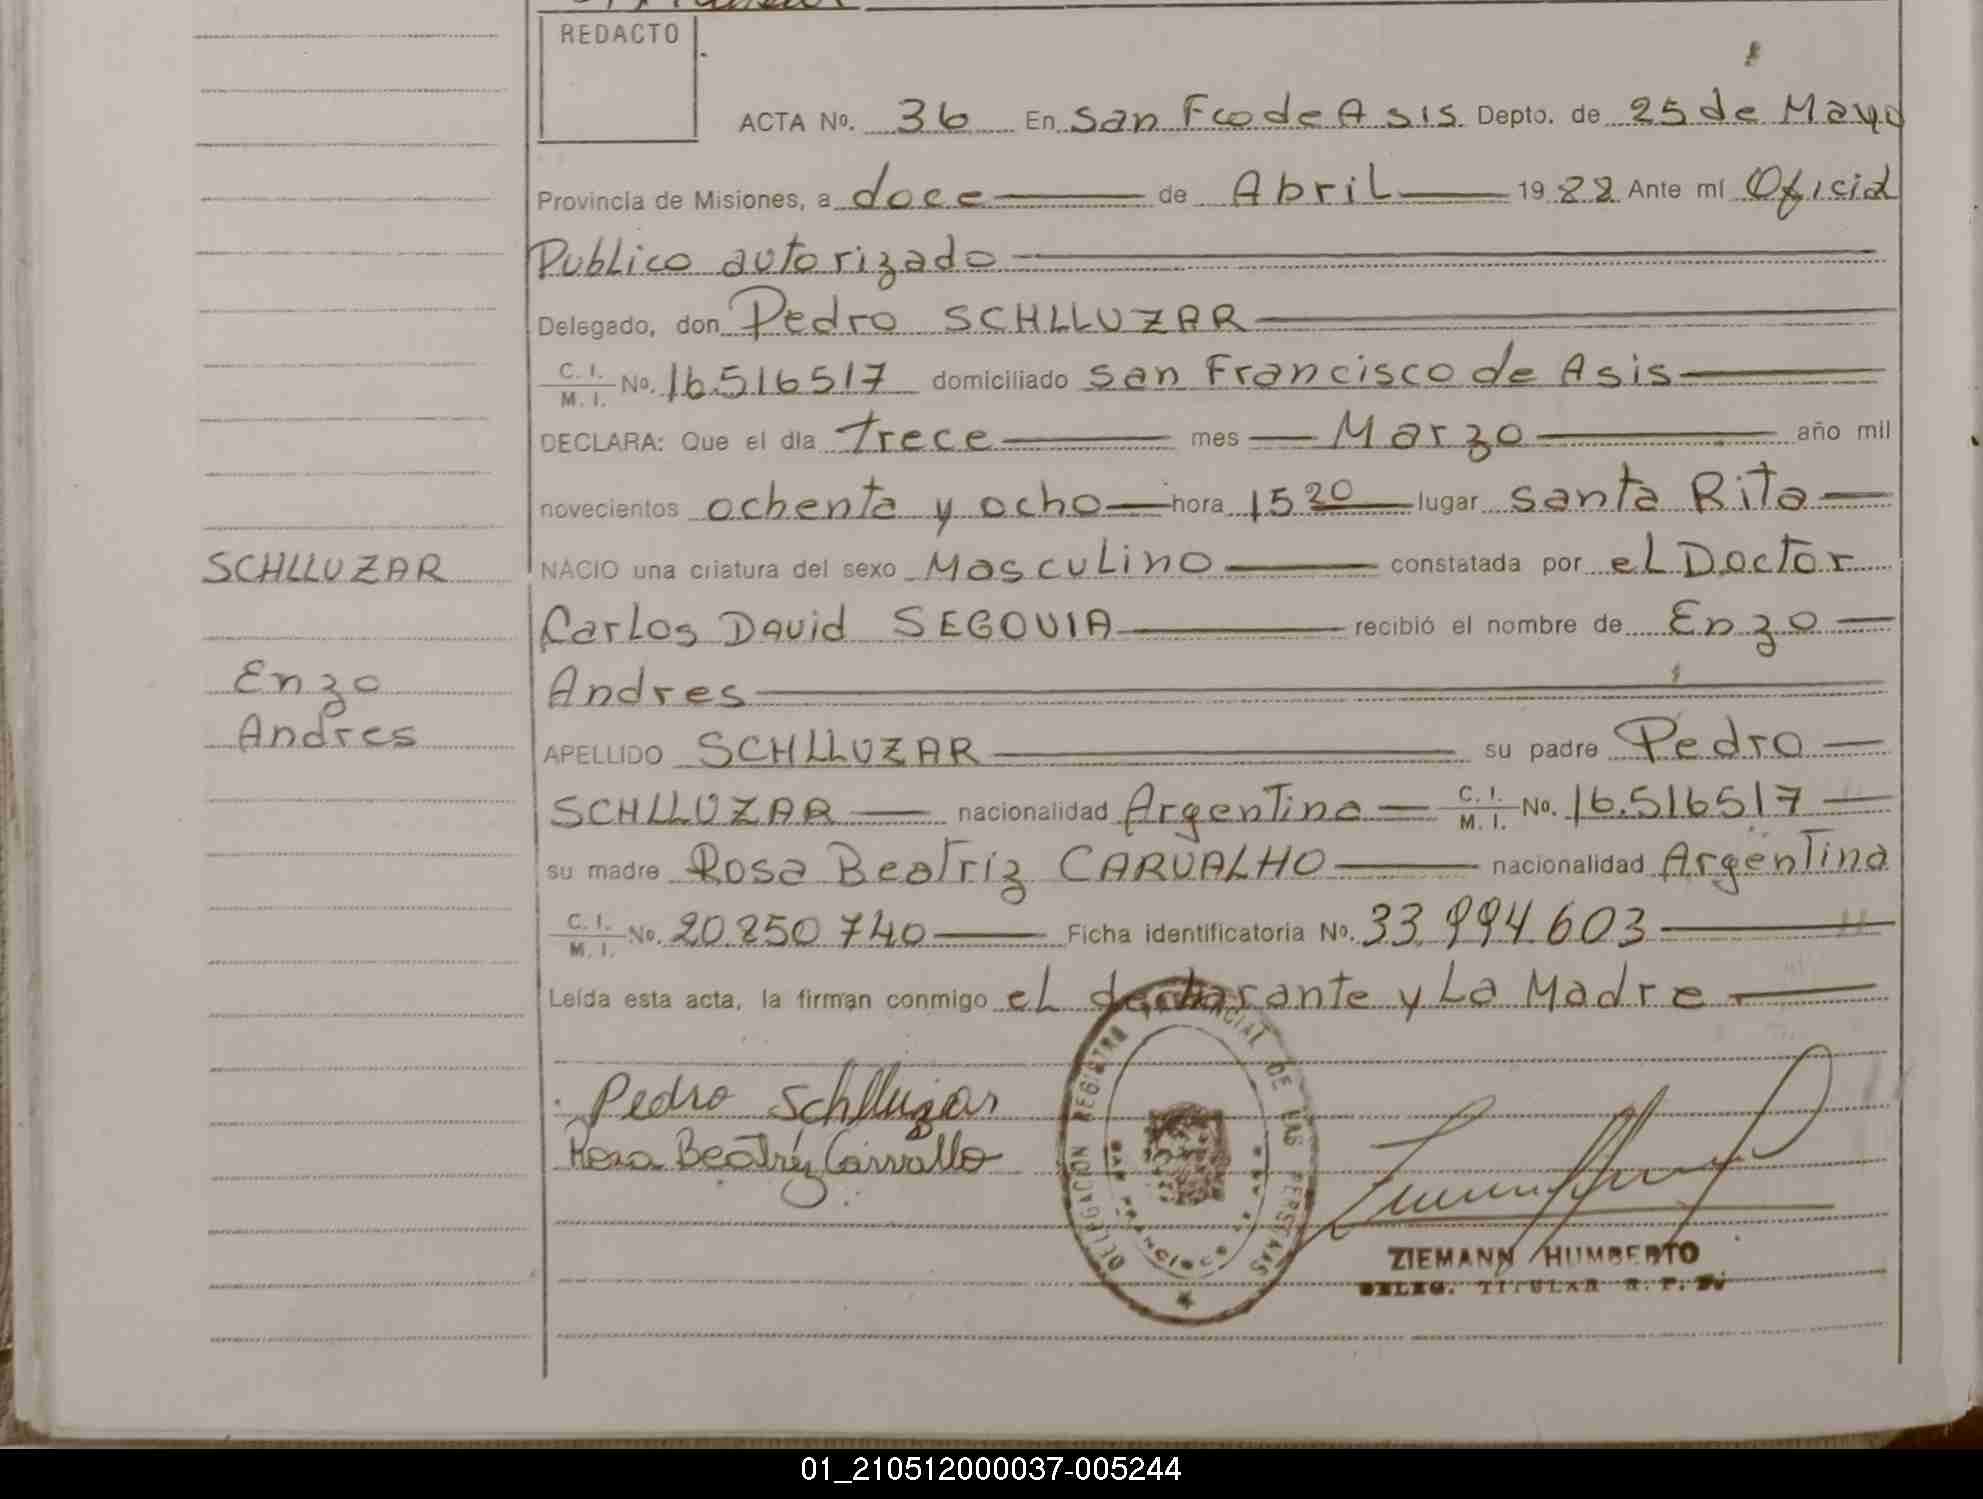 REDACTO
ACTA Nº. 36 En San Fco de Asis Depto. de 25 de Mayo
Provincia de Misiones, a doce de Abril 1988 Ante mí Oficial
Publico autorizado
Delegado, don Pedro SCHLLUZAR
C. I. M. I. Nº. 16.516517 domiciliado San Francisco de Asis
DECLARA: Que el día trece mes Marzo año mil
novecientos ochenta y ocho hora 15 20 lugar Santa Rita
SCHLLUZAR
NACIO una criatura del sexo Masculino constatada por el Doctor
Carlos David SEGOVIA recibió el nombre de Enzo
Enzo
Andres
Andres
APELLIDO SCHLLUZAR su padre Pedro
SCHLLUZAR nacionalidad Argentina C. I. M. I. Nº. 16.516517
su madre Rosa Beatriz CARVALHO nacionalidad Argentina
C. I. M. I. Nº. 20.850 740 Ficha identificatoria Nº. 33.994.603
Leída esta acta, la firman conmigo el declarante y La Madre
Pedro Schlluzar
Rosa Beatríz Carvallo
DELEGACION REGISTRO PROVINCIAL DE LAS PERSONAS
SAN FRANCISCO DE ASIS
ZIEMANN HUMBERTO
DELEG. TITULAR R. P. P.
01_210512000037-005244